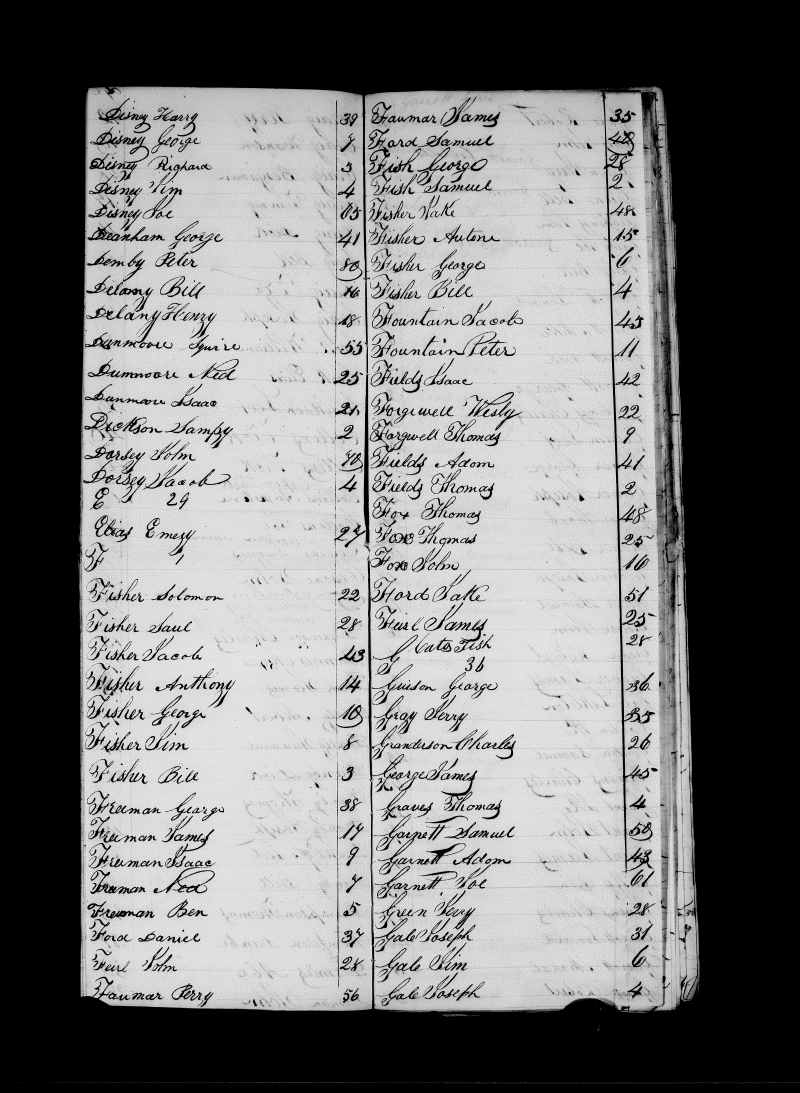 Disney Harry 39
Disney George 7
Disney Richard 3
Disney Jim 4
Disney Joe 65
Deanham George 41
Demby Peter 80
Delamy Bill 76
Delany Henry 18
Danmoore Squire 55
Dumnoore Ned 25
Danmore Isaac 21
Dickson Sampy 2
Dorsey John 70
Dorsey Jacob 4
E 29
Elias Emesy 27
F 1
Fisher Solomon 22
Fisher Saul 28
Fisher Jacob 43
Fisher Anthony 14
Fisher George 10
Fisher Jim 8
Fisher Bill 3
Freeman George 38
Freeman James 17
Freeman Isaac 9
Freeman Ned 7
Freeman Ben 5
Ford Daniel 37
Feirl John 28
Faumar Perry 56
Faumar James 35
Ford Samuel 40
Fish George 28
Fish Samuel 2
Fisher Jake 48
Fisher Antone 15
Fisher George 6
Fisher Bill 4
Fountain Jacob 45
Fountain Peter 11
Fields Isaac 42
Forgewell Wesly 22
Forgwell Thomas 9
Fields Adom 41
Fields Thomas 2
Fox Thomas 48
Fox Thomas 25
Fox John 16
Ford Jake 51
Feirl James 25
Cato Fish 28
G 36
Guison George 36
Gray Jerry 35
Granderson Charles 26
George James 45
Graves Thomas 4
Garnett Samuel 50
Garnett Adom 43
Garnett Joe 61
Green Jerry 28
Gale Joseph 31
Gale Jim 6
Gale Joseph 4